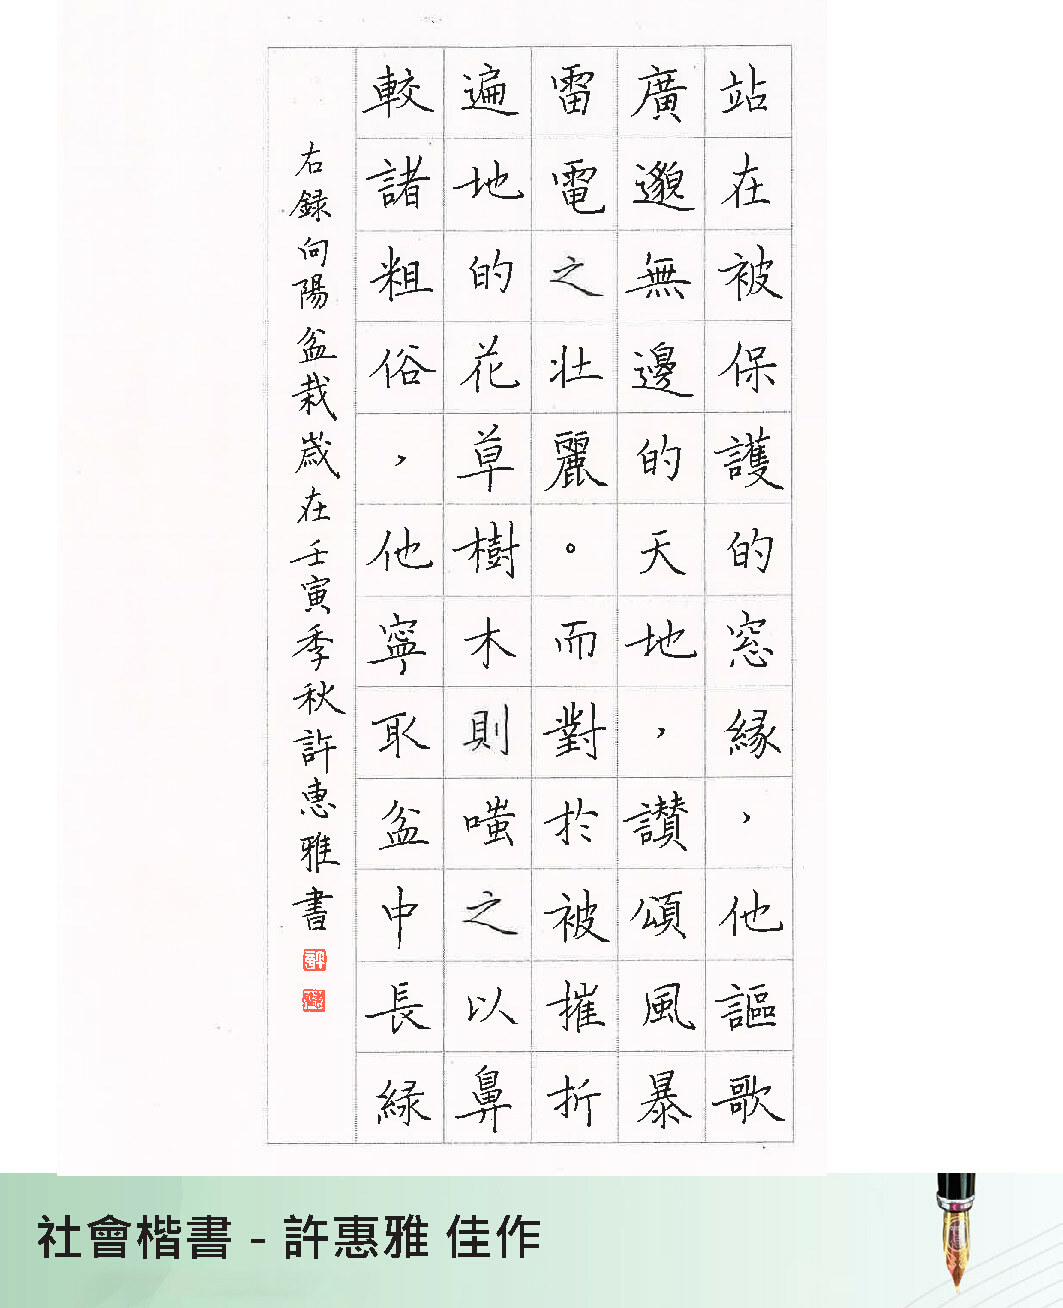 站在被保護的窓緣，他謳歌
廣邈無邊的天地，讃頌風暴
雷電之壯麗。而對於被摧折
遍地的花草樹木則嗤之以鼻
較諸粗俗，他寧取盆中長綠
右録向陽盆栽歲在壬寅季秋許惠雅書
社會楷書 - 許惠雅 佳作